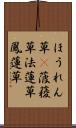 ほうれん
草菠薐
草法蓮草
鳳蓮草